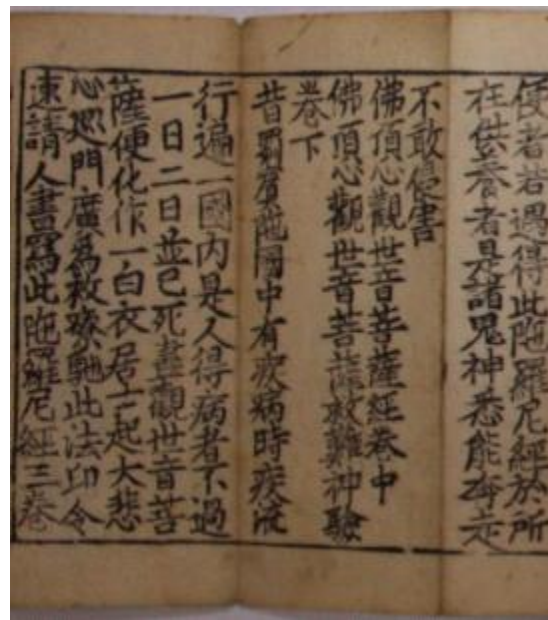 使者若遇得此陁羅尼經於所
在供養者是諸鬼神悉能奔走
不敢侵害
佛頂心觀世音菩薩經卷中
佛頂心觀世音菩薩救難神驗
卷下
昔罽賓陁國中有疾病時疾流
行遍一國內是人得病者不過
一日二日並已死盡觀世音菩
薩便化作一白衣居士起大悲
心巡門廣爲救療馳此法印令
速請人書寫此陁羅尼經三卷